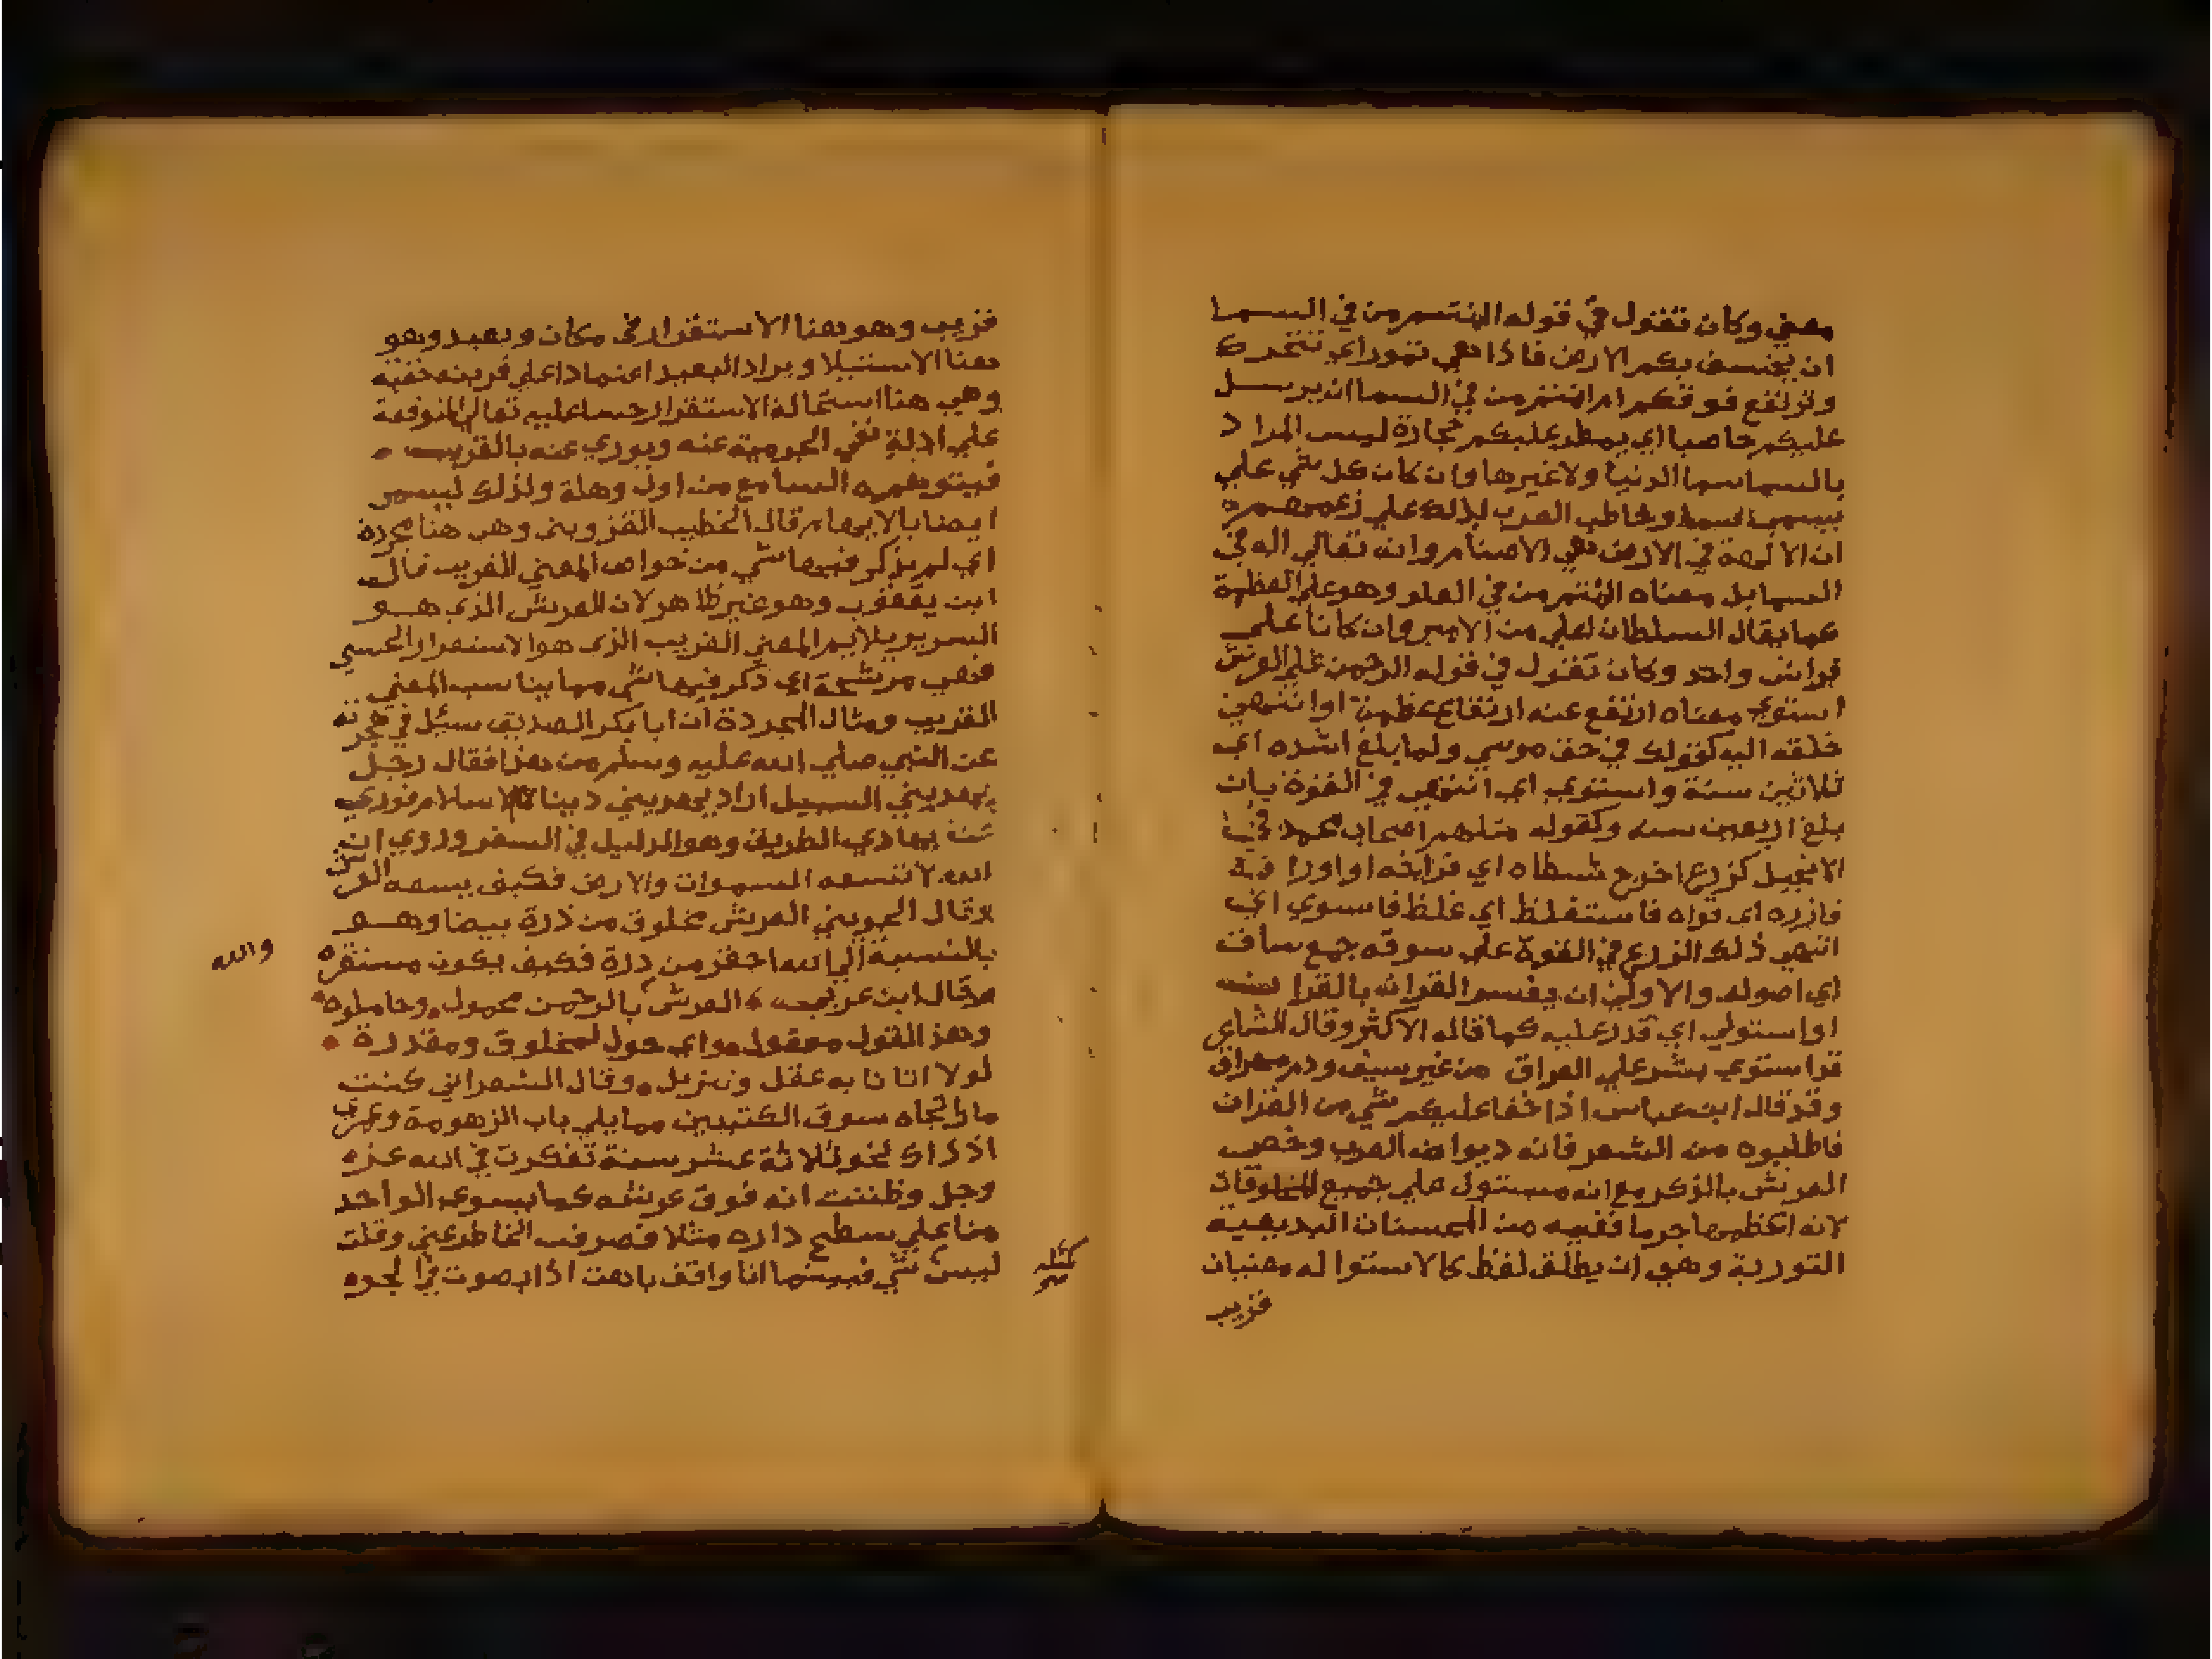 معني وكان تقول في قوله اامنتم من في السما
ان يخسف بكم الارض فاذا هي تمور اي تتحرك
وترتفع فوقكم ام امنتم من في السما ان يرسل
عليكم حاصبا اي يمطر عليكم حجارة ليس المراد
بالسما سما الدنيا ولا غيرها وان كان كل شي علي
يسمي سما ويخاطب العرب بذلك علي زعمهم
ان الالهة في الارض هي الاصنام وانه تعالي اله في
السما بل معناه اامنتم من في العلو وهو علو العظمة
كما يقال السلطان اعلي من الامير وان كانا علي
فراش واحد وكان تقول في قوله الرحمن علي العرش
استوي معناه ارتفع عنه ارتفاع عظمة او انتهي
خلقه اليه كقولك في حق موسي ولما بلغ اشده اي
ثلاثين سنة واستوي اي انتهي في القوة بان
بلغ اربعين سنه وكقوله مثلهم اصحاب محمد في
الانجيل كزرع اخرج شطاه اي فراخه او اوراقه
فازره اي قواه فاستغلظ اي غلظ فاستوي اي
انتهي ذلك الزرع في القوة علي سوقه جمع ساق
اي اصوله والاولي ان يفسر القران بالقران
او استولي اي قدر عليه كما قاله الاكثر وقال الشاعر
قد استوي بشر علي العراق من غير سيف ودم مهراق
وقد قال ابن عباس اذا خفا عليكم شي من القران
فاطلبوه من الشعر فانه ديوان العرب وخص
العرش بالذكر مع انه مستول علي جميع المخلوقات
لانه اعظمها جرما ففيه من المحسنات البديعية
التورية وهي ان يطلق لفظ كالاستوا له معنيان
قريب
قريب وهو هنا الاستقرار في مكان وبعيد وهو
هنا الاستيلا ويراد البعيد اعتمادا علي قرينه خفية
وهي هنا استحالة الاستقرار حسا عليه تعالي المتوقفة
علي ادلة نفي الجرمية عنه ويوري عنه بالقريب
فيتوهمه السامع من اول وهلة ولذلك ليسمي
ايضا بالايهام قال الخطيب القزويني وهي هنا مجردة
اي لم يذكر فيها شي من خواص المعني القريب قال
ابن يعقوب وهو غير ظاهر لان العرش الذي هو
السرير يلايم المعني القريب الذي هو الاستقرار الحسي
فهي مرشحة اي ذكر فيها شي مما يناسب المعني
القريب ومثال المجردة ان ابا بكر الصديق سئل في هجرته
عن النبي صلي الله عليه وسلم من هذا فقال رجل
يهديني السبيل اراد يهديني دينا الاسلام فوري
عنه بهادي الطريق وهو الدليل في السفر وروي ان
الله لا تسعه السموات والارض فكيف يسعه العرش
وقال الجويني العرش مخلوق من درة بيضا وهو
بالنسبة الي الله احقر من ذرة فكيف يكون مستقره
والله
وقال ابن عربي العرش بالرحمن محمول وحاملوه
وهذا القول معقول واي حول لمخلوق ومقدرة
لولا اتانا به عقل وتنزيل وقال الشعراني كنت
مارا تجاه سوق الكتبيين مما يلي باب الزهومة وعمري
اذ ذاك نحو ثلاثة عشر سنة تفكرت في الله عز
وجل وظننت انه فوق عرشه كما يستوي الواحد
منا علي سطح داره مثلا فصرفت الخاطر عني وقلت
ليس شي فبينما انا واقف باهت اذا بصوت في الجو
كمثله